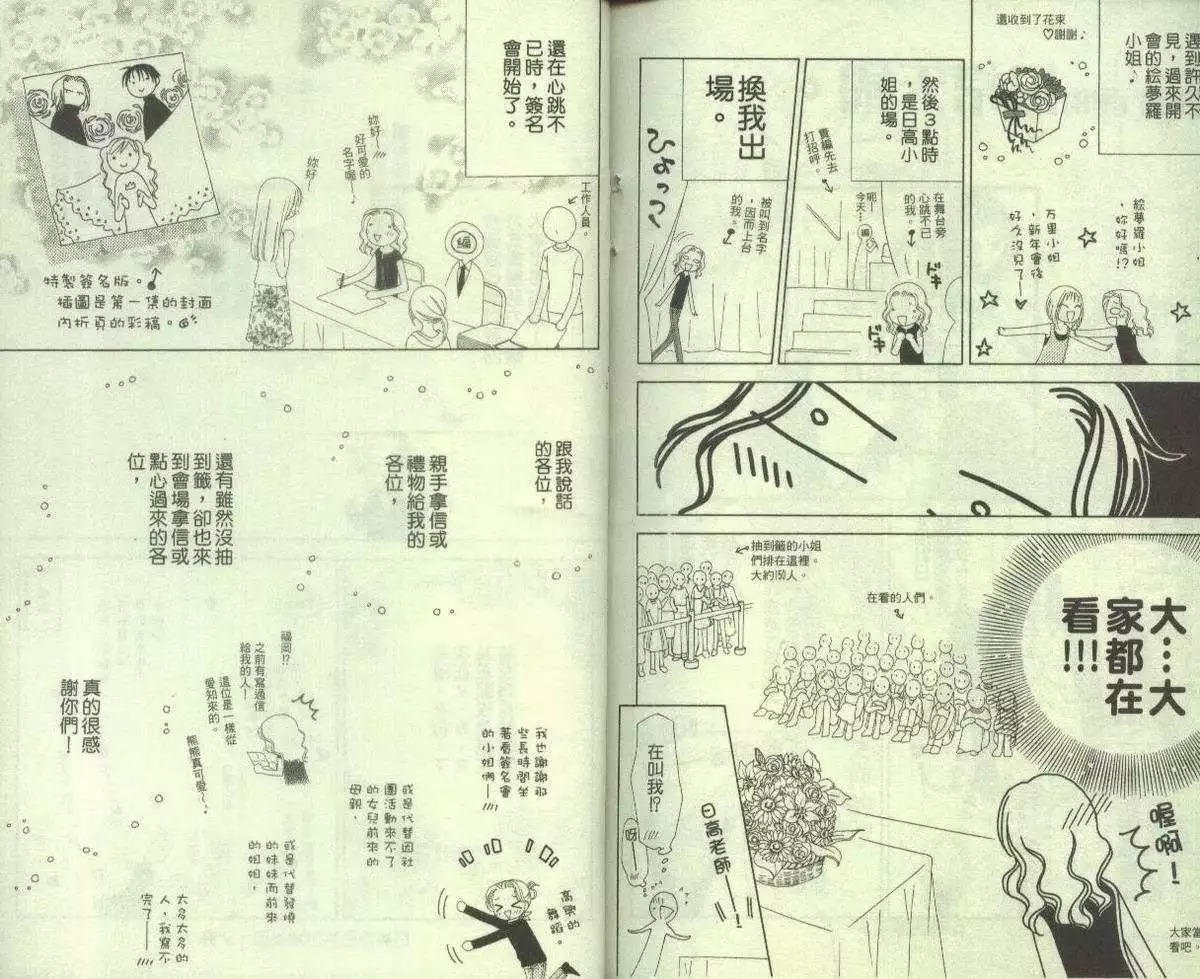 遇到許久不
見，過來開
會的絵夢羅
小姐♪
還收到了花束
♡謝謝♪
絵夢羅小姐
，妳好嗎!?
万里小姐
，新年會後
好久沒見了——♥
然後３點時
，是日高小
姐的場。
責編先去
打招呼。
呃—
今天…
編
在舞台旁
心跳不已
的我。
ドキ
ドキ
換我出
場。
ひょっっ
被叫到名字
，因而上台
的我。
大…大
家都在
看!!!
抽到籤的小姐
們排在這裡。
大約150人。
在看的人們。
喔啊！
大家當
看吧。
日高老師——！
在叫我!?
呀
還在心跳不
已時，簽名
會開始了。
工作人員。
編
妳好——
好可愛的
名字喔——
妳好—
特製簽名版。
插圖是第一集的封面
內折頁的彩稿。
跟我說話
的各位，
親手拿信或
禮物給我的
各位，
還有雖然沒抽
到籤，卻也來
到會場拿信或
點心過來的各
位，
福岡!?
之前有寫過信
給我的人—
這位是一樣從
愛知來的。
熊熊真可愛～
真的很感
謝你們！
我也謝謝那
些長時間坐
著看簽名會
的小姐們——
或是代替因社
團活動來不了
的女兒前來的
母親，
或是代替發燒
的妹妹而前來
的姐姐，
太多太多的
人，我寫不
完了——
高興的
舞蹈。